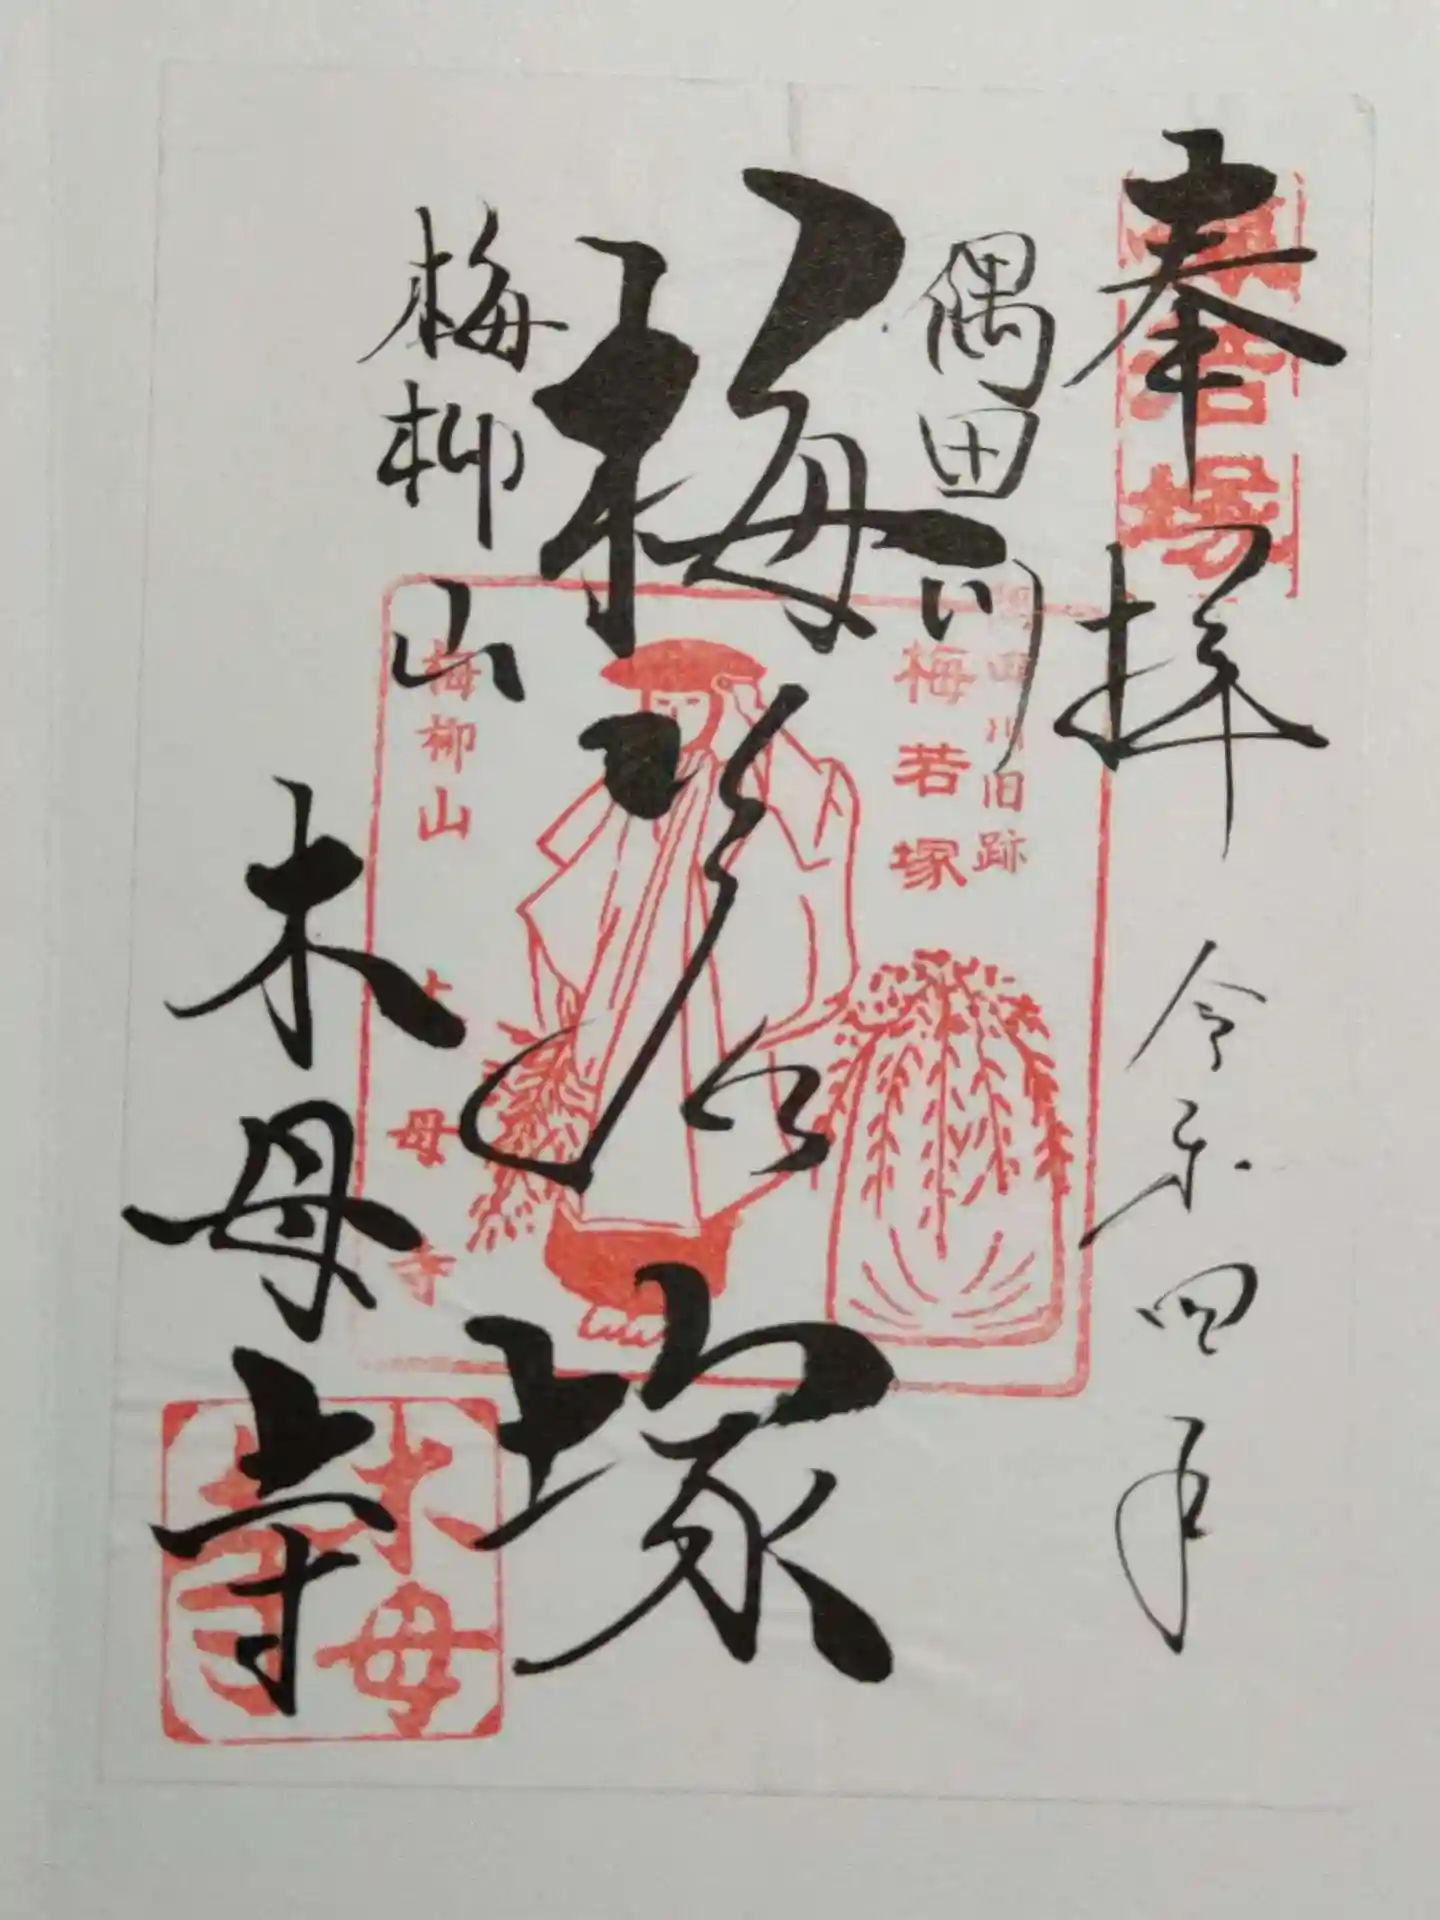 奉拝 令和四年
梅若塚
隅田川
梅若塚
梅柳山
木母寺
隅田川旧跡
梅若塚
梅柳山
木母寺
木母寺